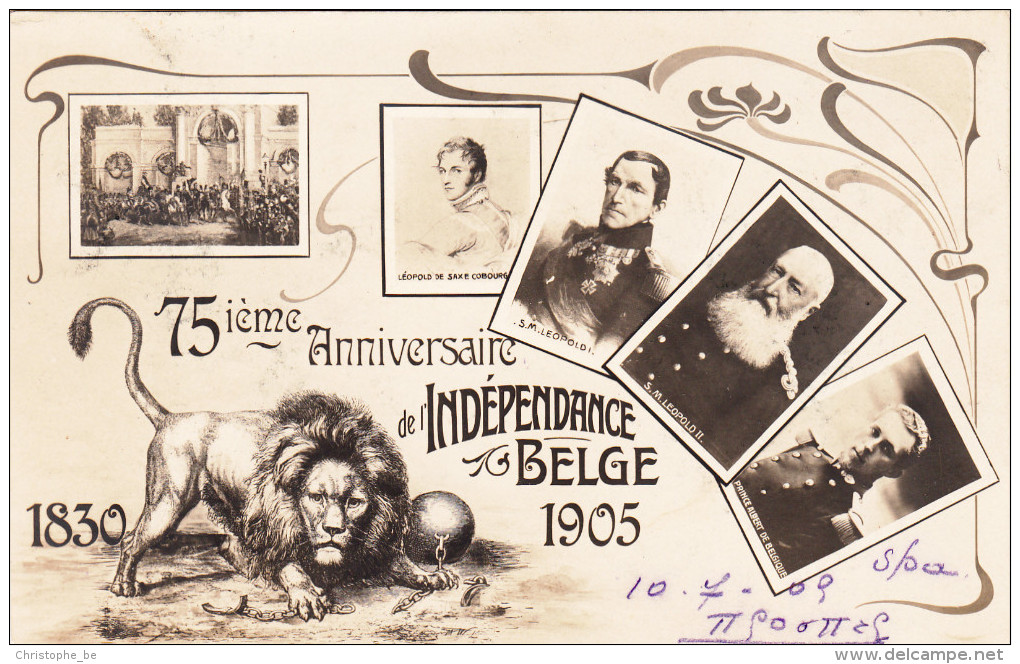 LÉOPOLD DE SAXE COBOURG
S.M. LEOPOLD I.
S.M. LEOPOLD II.
PRINCE ALBERT DE BELGIQUE
75ième
Anniversaire
de l'INDÉPENDANCE
BELGE
1830
1905
Spa
10.7-09
Christophe_be
delcampe.net